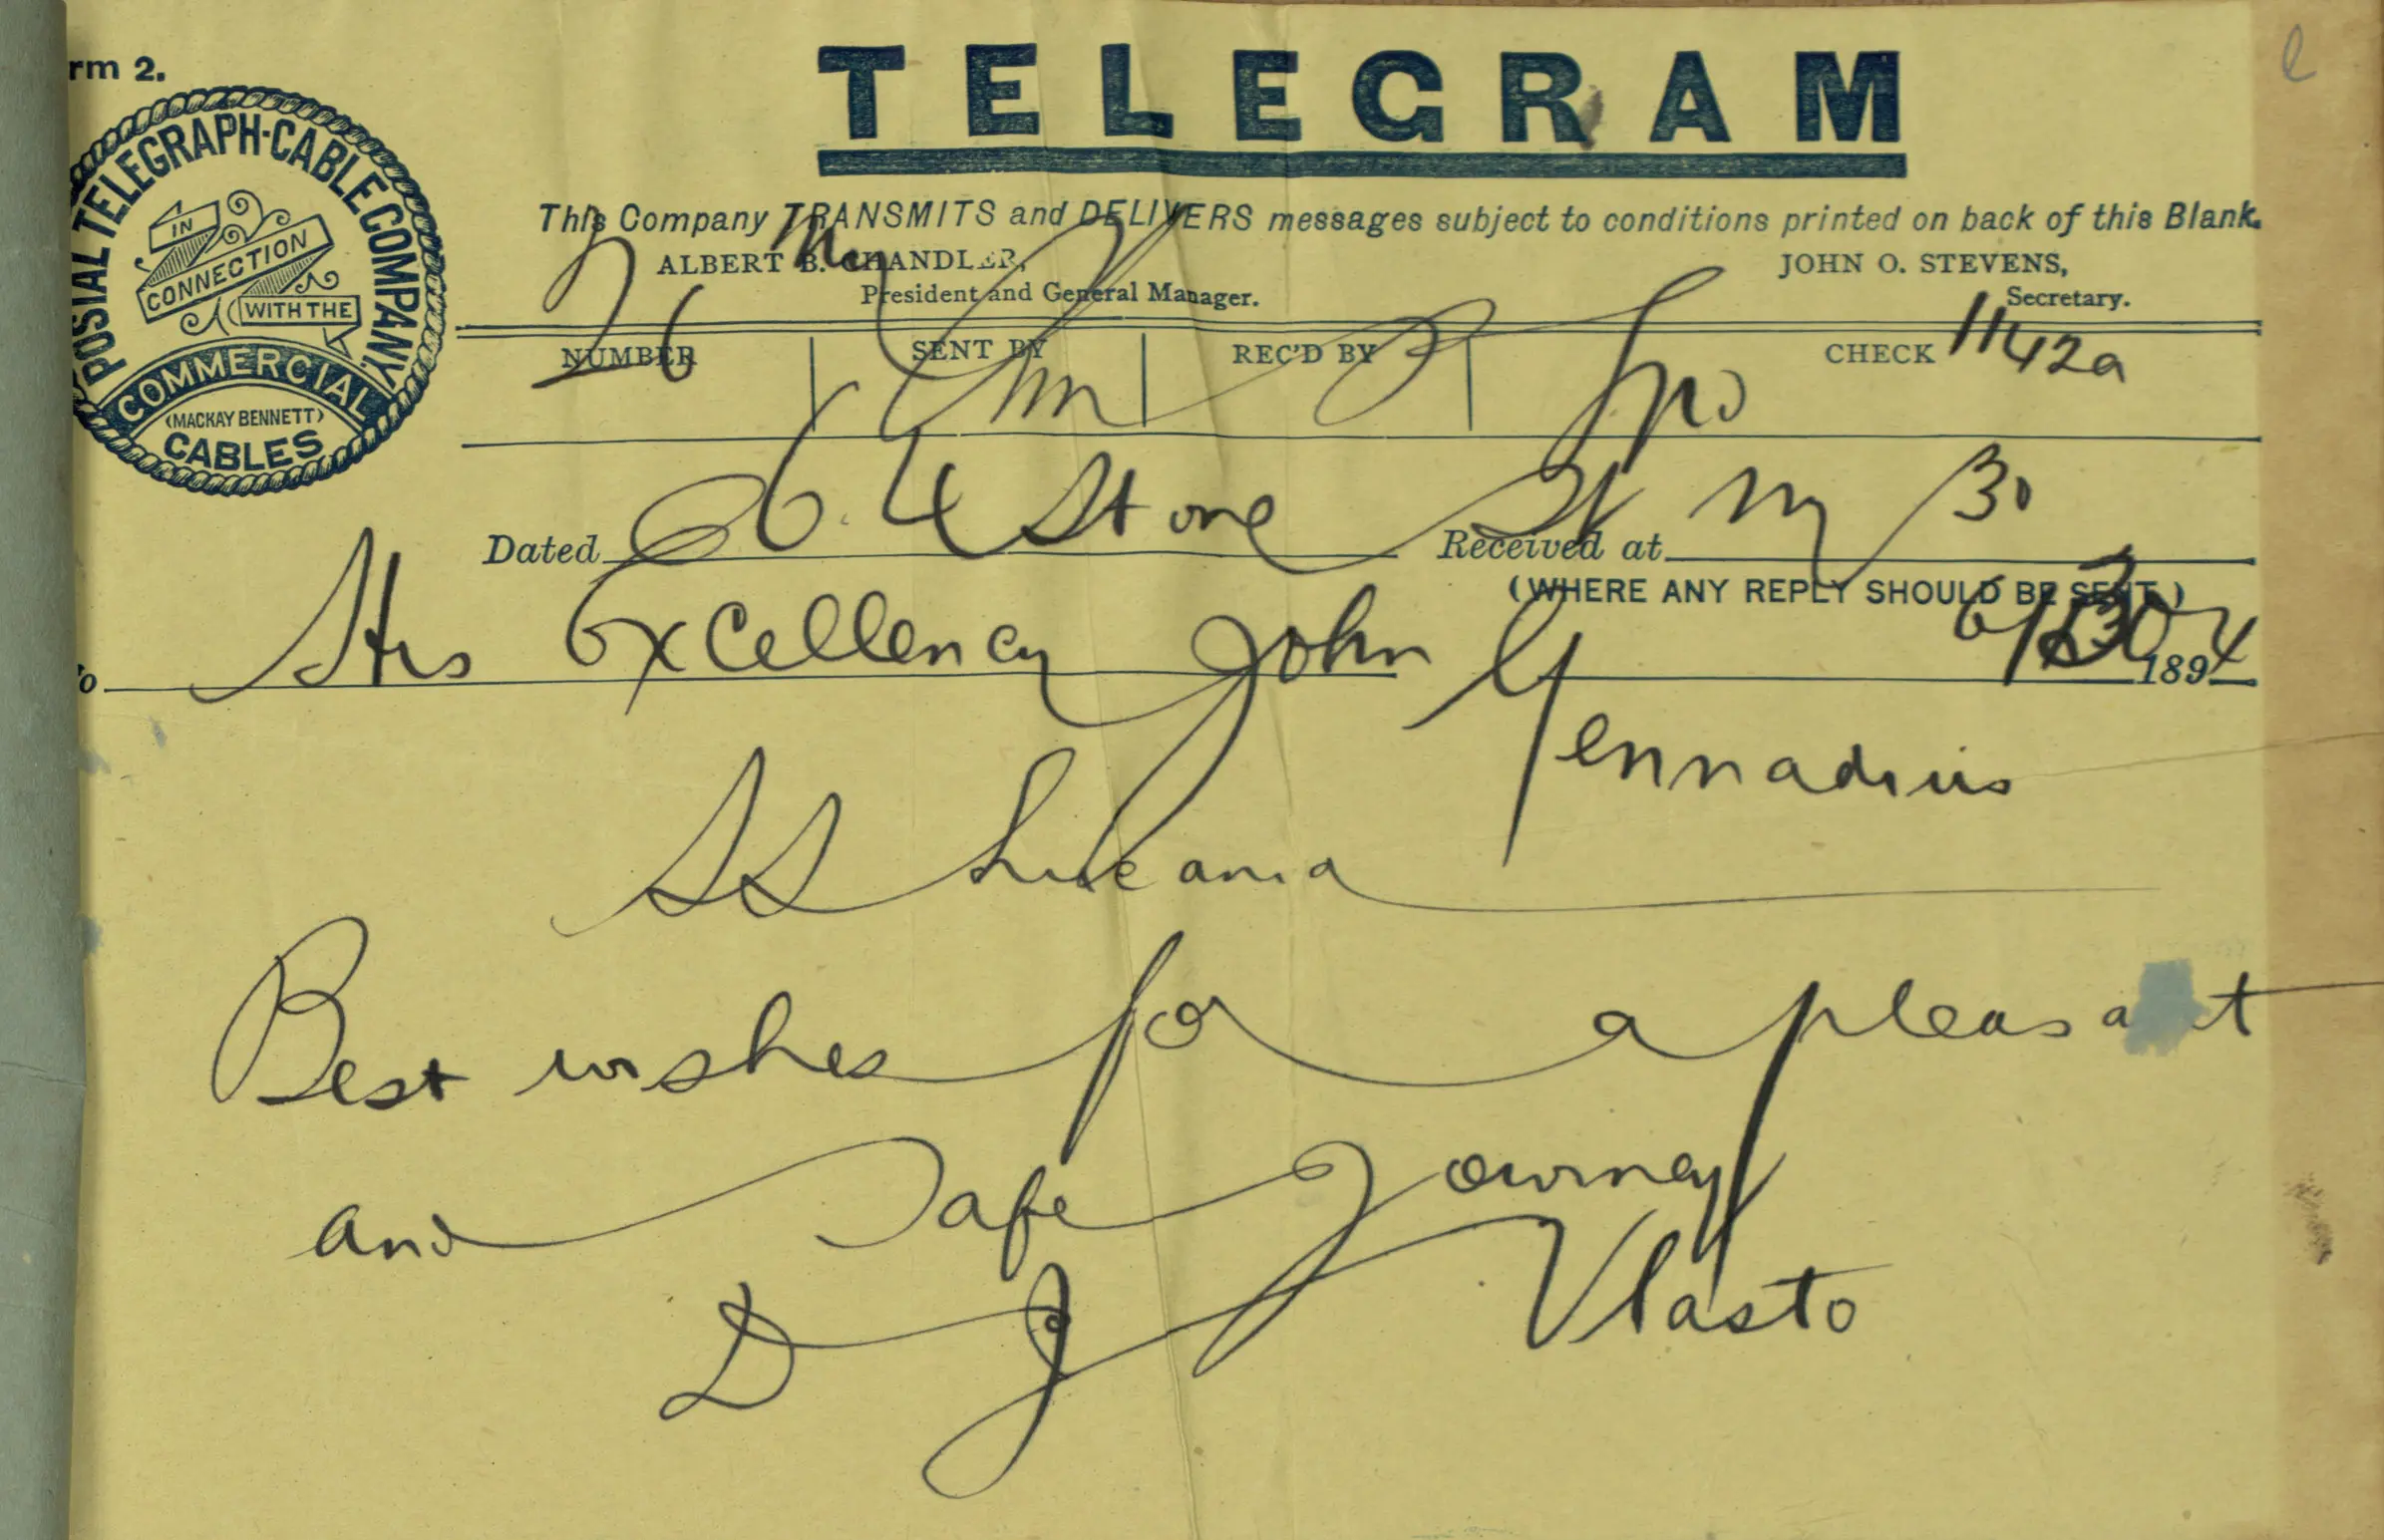 rm 2.
TELEGRAM
POSTAL TELEGRAPH-CABLE COMPANY
IN
CONNECTION
WITH THE
COMMERCIAL
(MACKAY BENNETT)
CABLES
This Company TRANSMITS and DELIVERS messages subject to conditions printed on back of this Blank.
ALBERT B. CHANDLER,
President and General Manager.
JOHN O. STEVENS,
Secretary.
26
NUMBER
SENT BY
REC'D BY
CHECK 1142a
Dated 64 Stone St NY 30
Received at
(WHERE ANY REPLY SHOULD BE SENT.)
1894
To His Excellency John Gennadius
SS Lucania
Best wishes for a pleasant
and Safe Journey
D J Vlasto